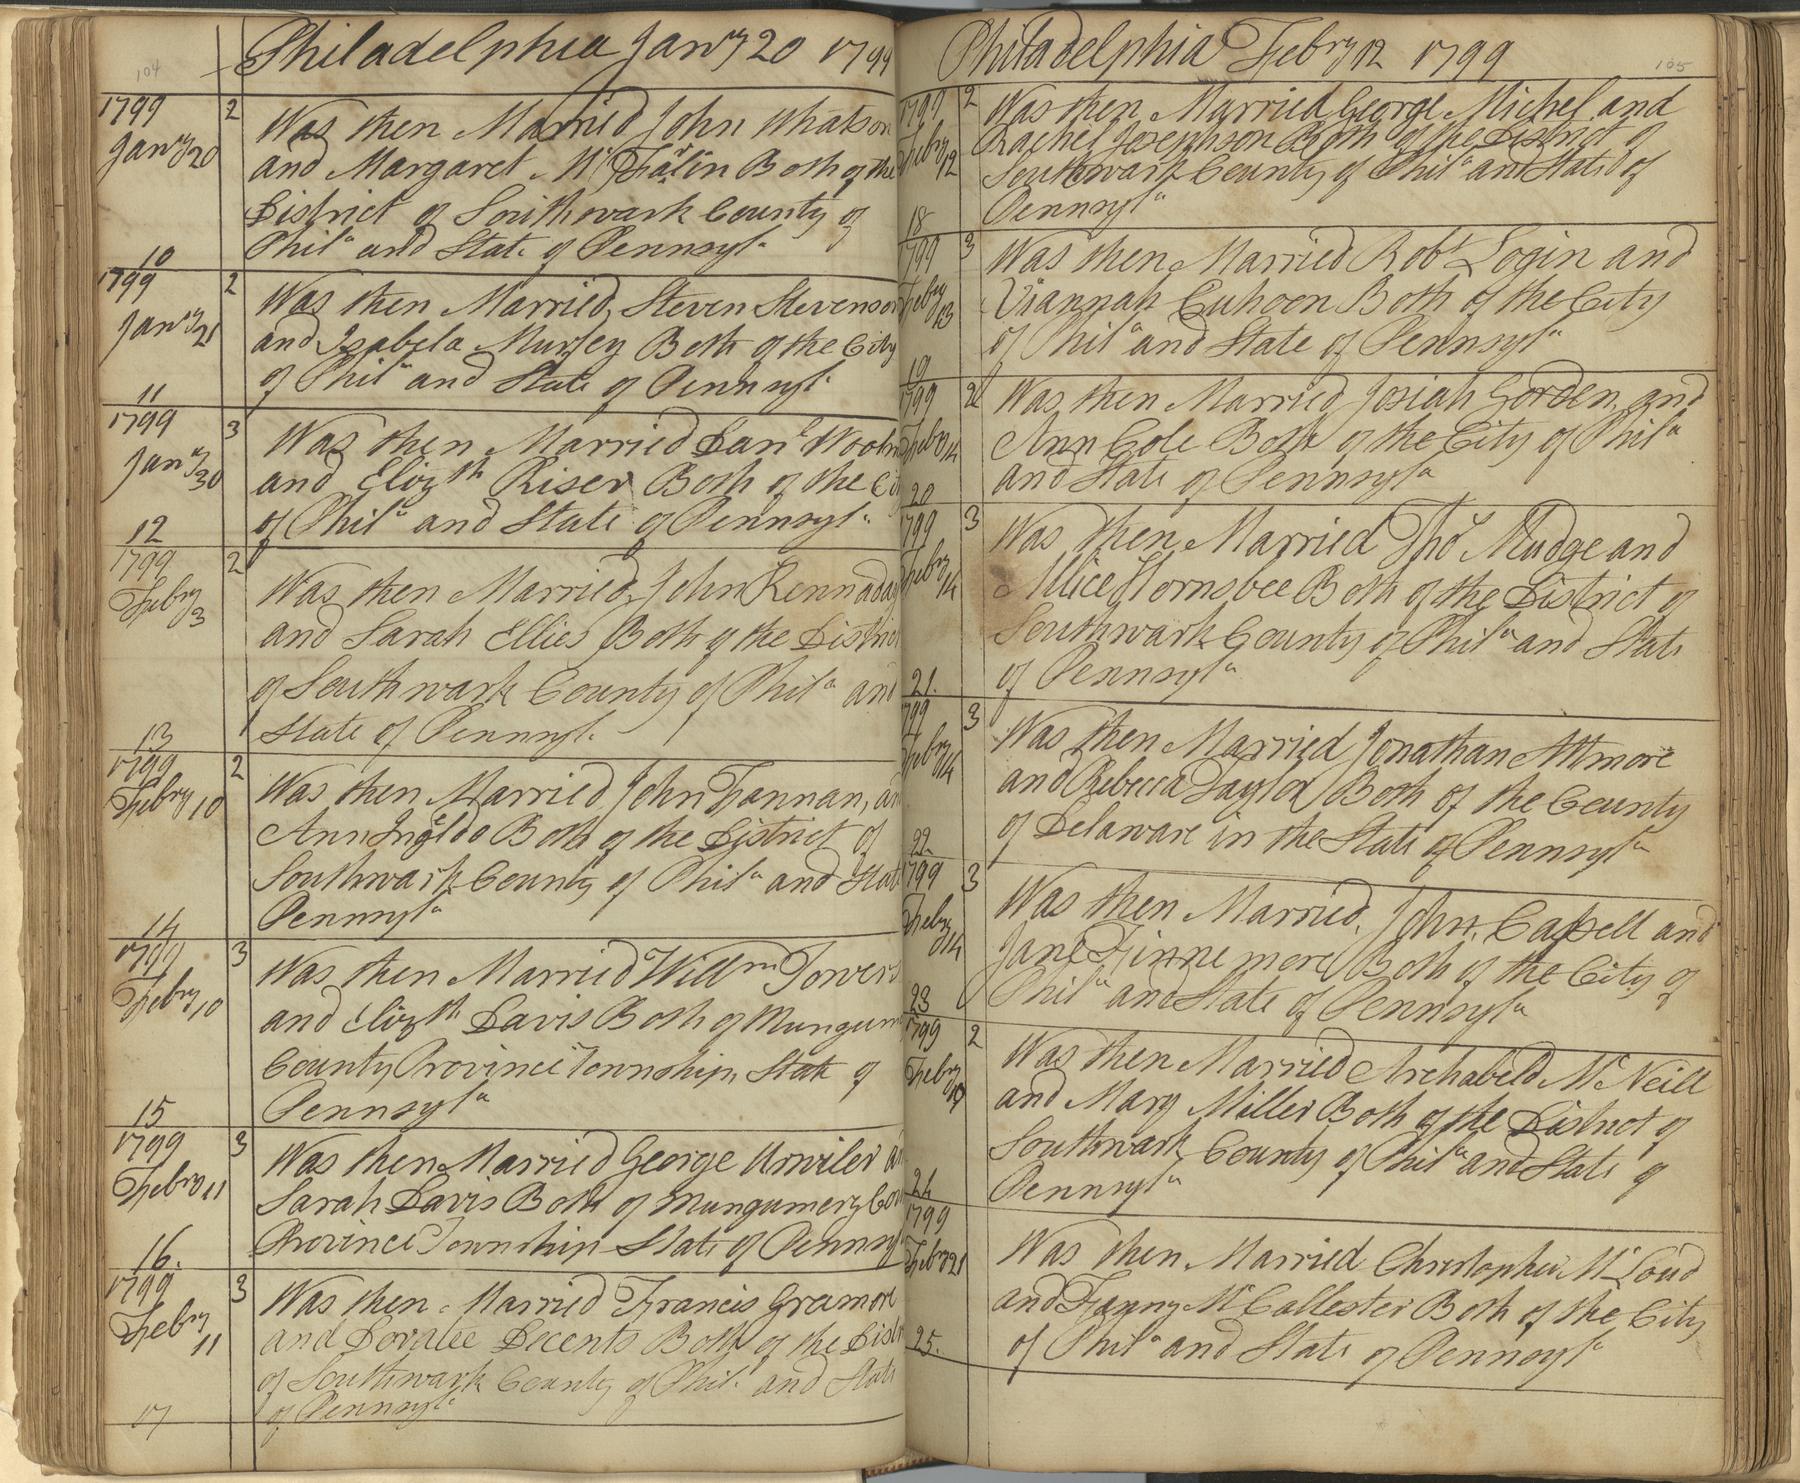 104
Philadelphia Janry 20 1799
1799
Janry 20
10
2
Was then Married John Whatson
and Margaret Mc Both of the
District of Southwark County of
Phila and State of Pennsyla
1799
Janry 21
11
2
Was then Married Steven Stevenson
and Isabela Both of the City
of Phila and State of Pennsyla
1799
Janry 30
12
3
Was then Married Danl
and Elizth Riser Both of the City
of Phila and State of Pennsyla
1799
Febry 3
13
2
Was then Married John Kennaday
and Sarah Ellies Both of the District
of Southwark County of Phila and
State of Pennsyla
1799
Febry 10
14
2
Was then Married John Fannan, and
Ann Both of the District of
Southwark County of Phila and State
Pennsyla
1799
Febry 10
15
3
Was then Married Willm Towers
and Elizth Davis Both of
County Province Township State of
Pennsyla
1799
Febry 11
16.
3
Was then Married George Urwiler and
Sarah Davis Both of Mungumery
Province Township State of Pennsy
1799
Febry 11
17
3
Was then Married Francis Gramore
and Decents Both of the Distr
of Southwark County of Phila and State
of Pennsyla
105
Philadelphia Febry 12 1799
1799
Febry 12
18
2
Was then Married George Michel and
Rachel Josephson Both of the District of
Southwark County of Phila and State of
Pennsyla
1799
Febry 13
19
3
Was then Married Robt Login and
Viannah Cuhoon Both of the City
of Phila and State of Pennsyla
1799
Febry 14
20
2
Was then Married Josiah Gorden and
Ann Cole Both of the City of Phila
and State of Pennsyla
1799
Febry 14
21.
3
Was then Married Thos Mudge and
Allice Hornsbee Both of the District of
Southwark County of Phila and State
of Pennsyla
1799
Febry 14
22.
3
Was then Married Jonathan Attmore
and Rebecca Taylor Both of the County
of Delaware in the State of Pennsyla
1799
Febry 14
23
3
Was then Married, John, Cassell and
Jane Finnemore Both of the City of
Phila and State of Pennsyla
1799
Febry 19
24
2
Was then Married Archabeld Mc Neill
and Mary Miller Both of the District of
Southwark County of Phila and State of
Pennsyla
1799
Febry 21
25.
Was then Married Christopher Mc Loud
and Fanny Mc Callester Both of the City
of Phila and State of Pennsyla